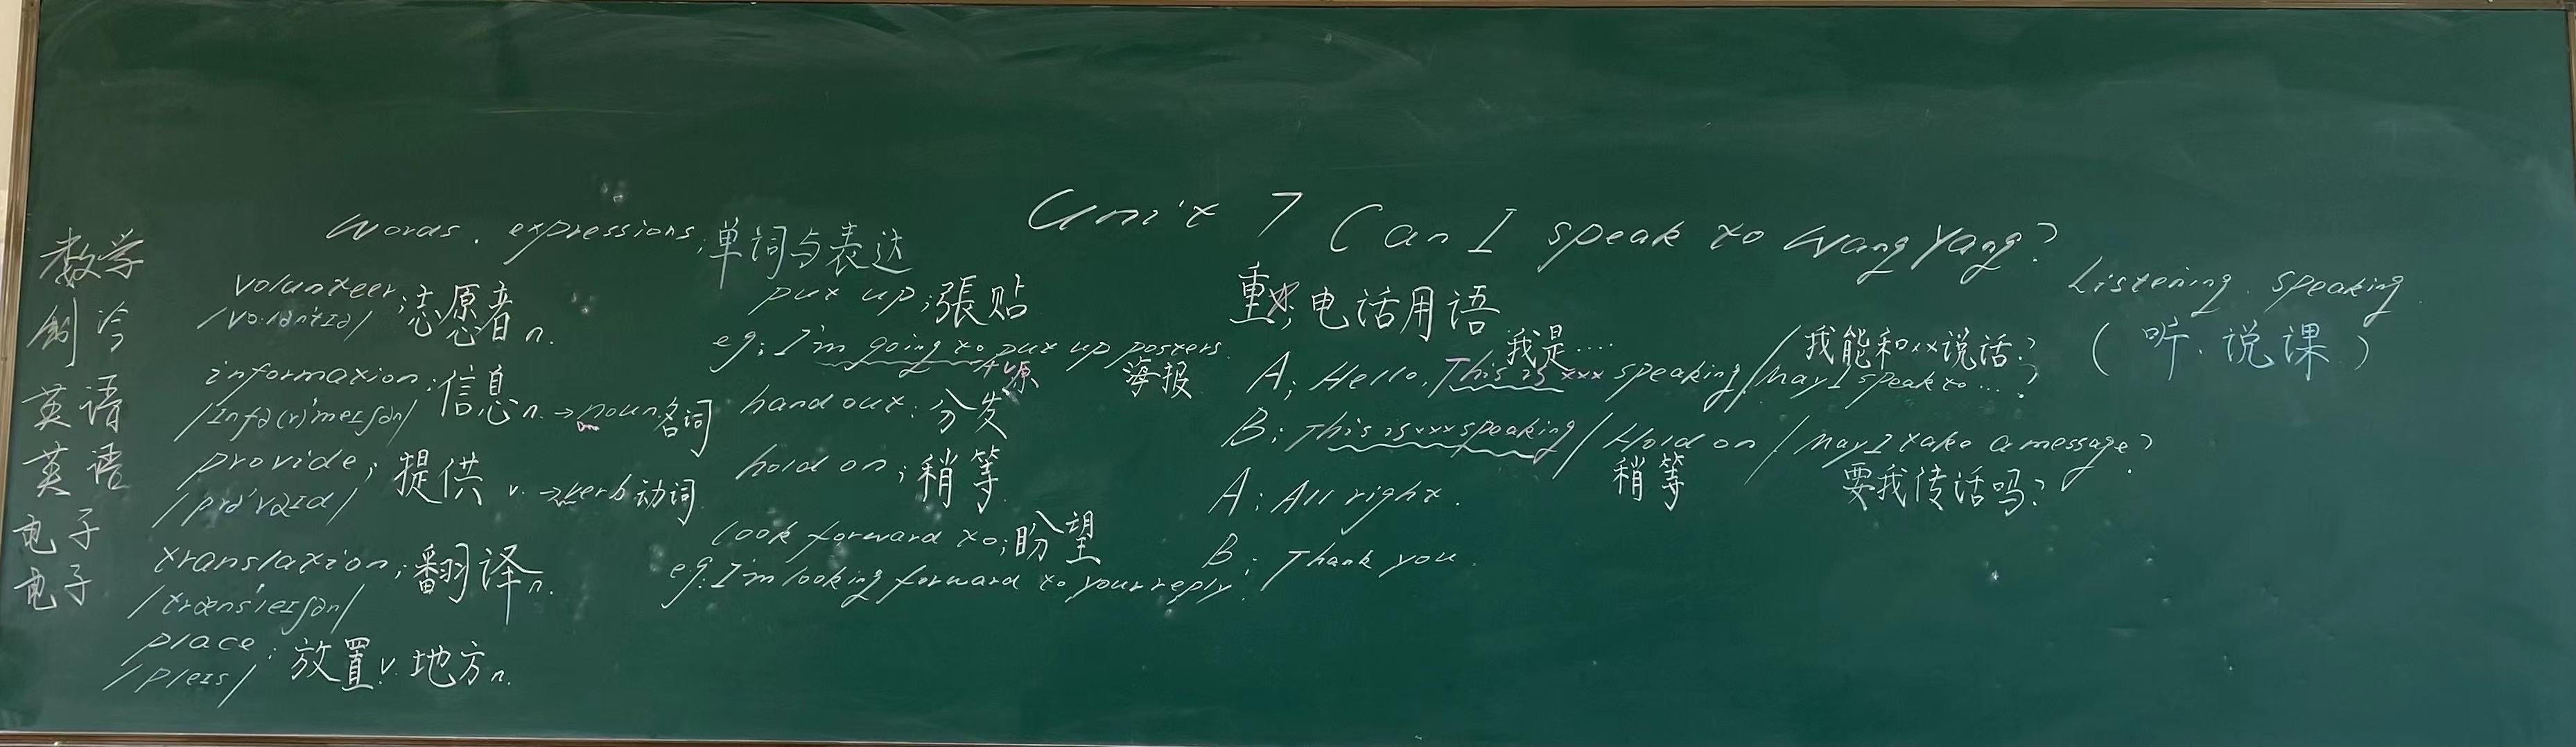 Unit 7 Can I speak to Wang Yang?
Listening. speaking
(听.说课)
数学
创
英语
英语
电子
电子
Words. expressions:单词与表达
volunteer:志愿者n.
/ˌvɒlənˈtɪə/
information:信息n.→noun名词
/ˌɪnfə(r)ˈmeɪʃən/
provide:提供 v.→verb动词
/prəˈvaɪd/
translation:翻译n.
/trænsˈleɪʃən/
place:放置v.地方n.
/pleɪs/
put up:張贴
eg:I'm going to put up posters.
+v原 海报
hand out:分发
hold on:稍等
look forward to:盼望
eg:I'm looking forward to your reply.
重:电话用语
我是....
我能和xx说话?
A:Hello,This is xxx speaking/May I speak to...?
B:This is xxx speaking/Hold on/May I take a message?
稍等 要我传话吗?
A:All right.
B:Thank you.